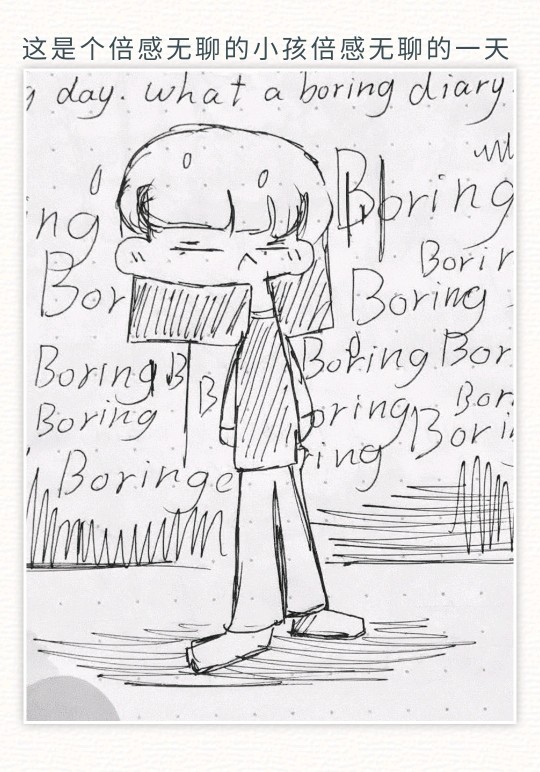 这是个倍感无聊的小孩倍感无聊的一天
day. what a boring diary.
Boring
ing
Borin
Bor
Boring
Boring B
Boring Bor
B
Boring
oring
Bor
Borin
ring
Boringe